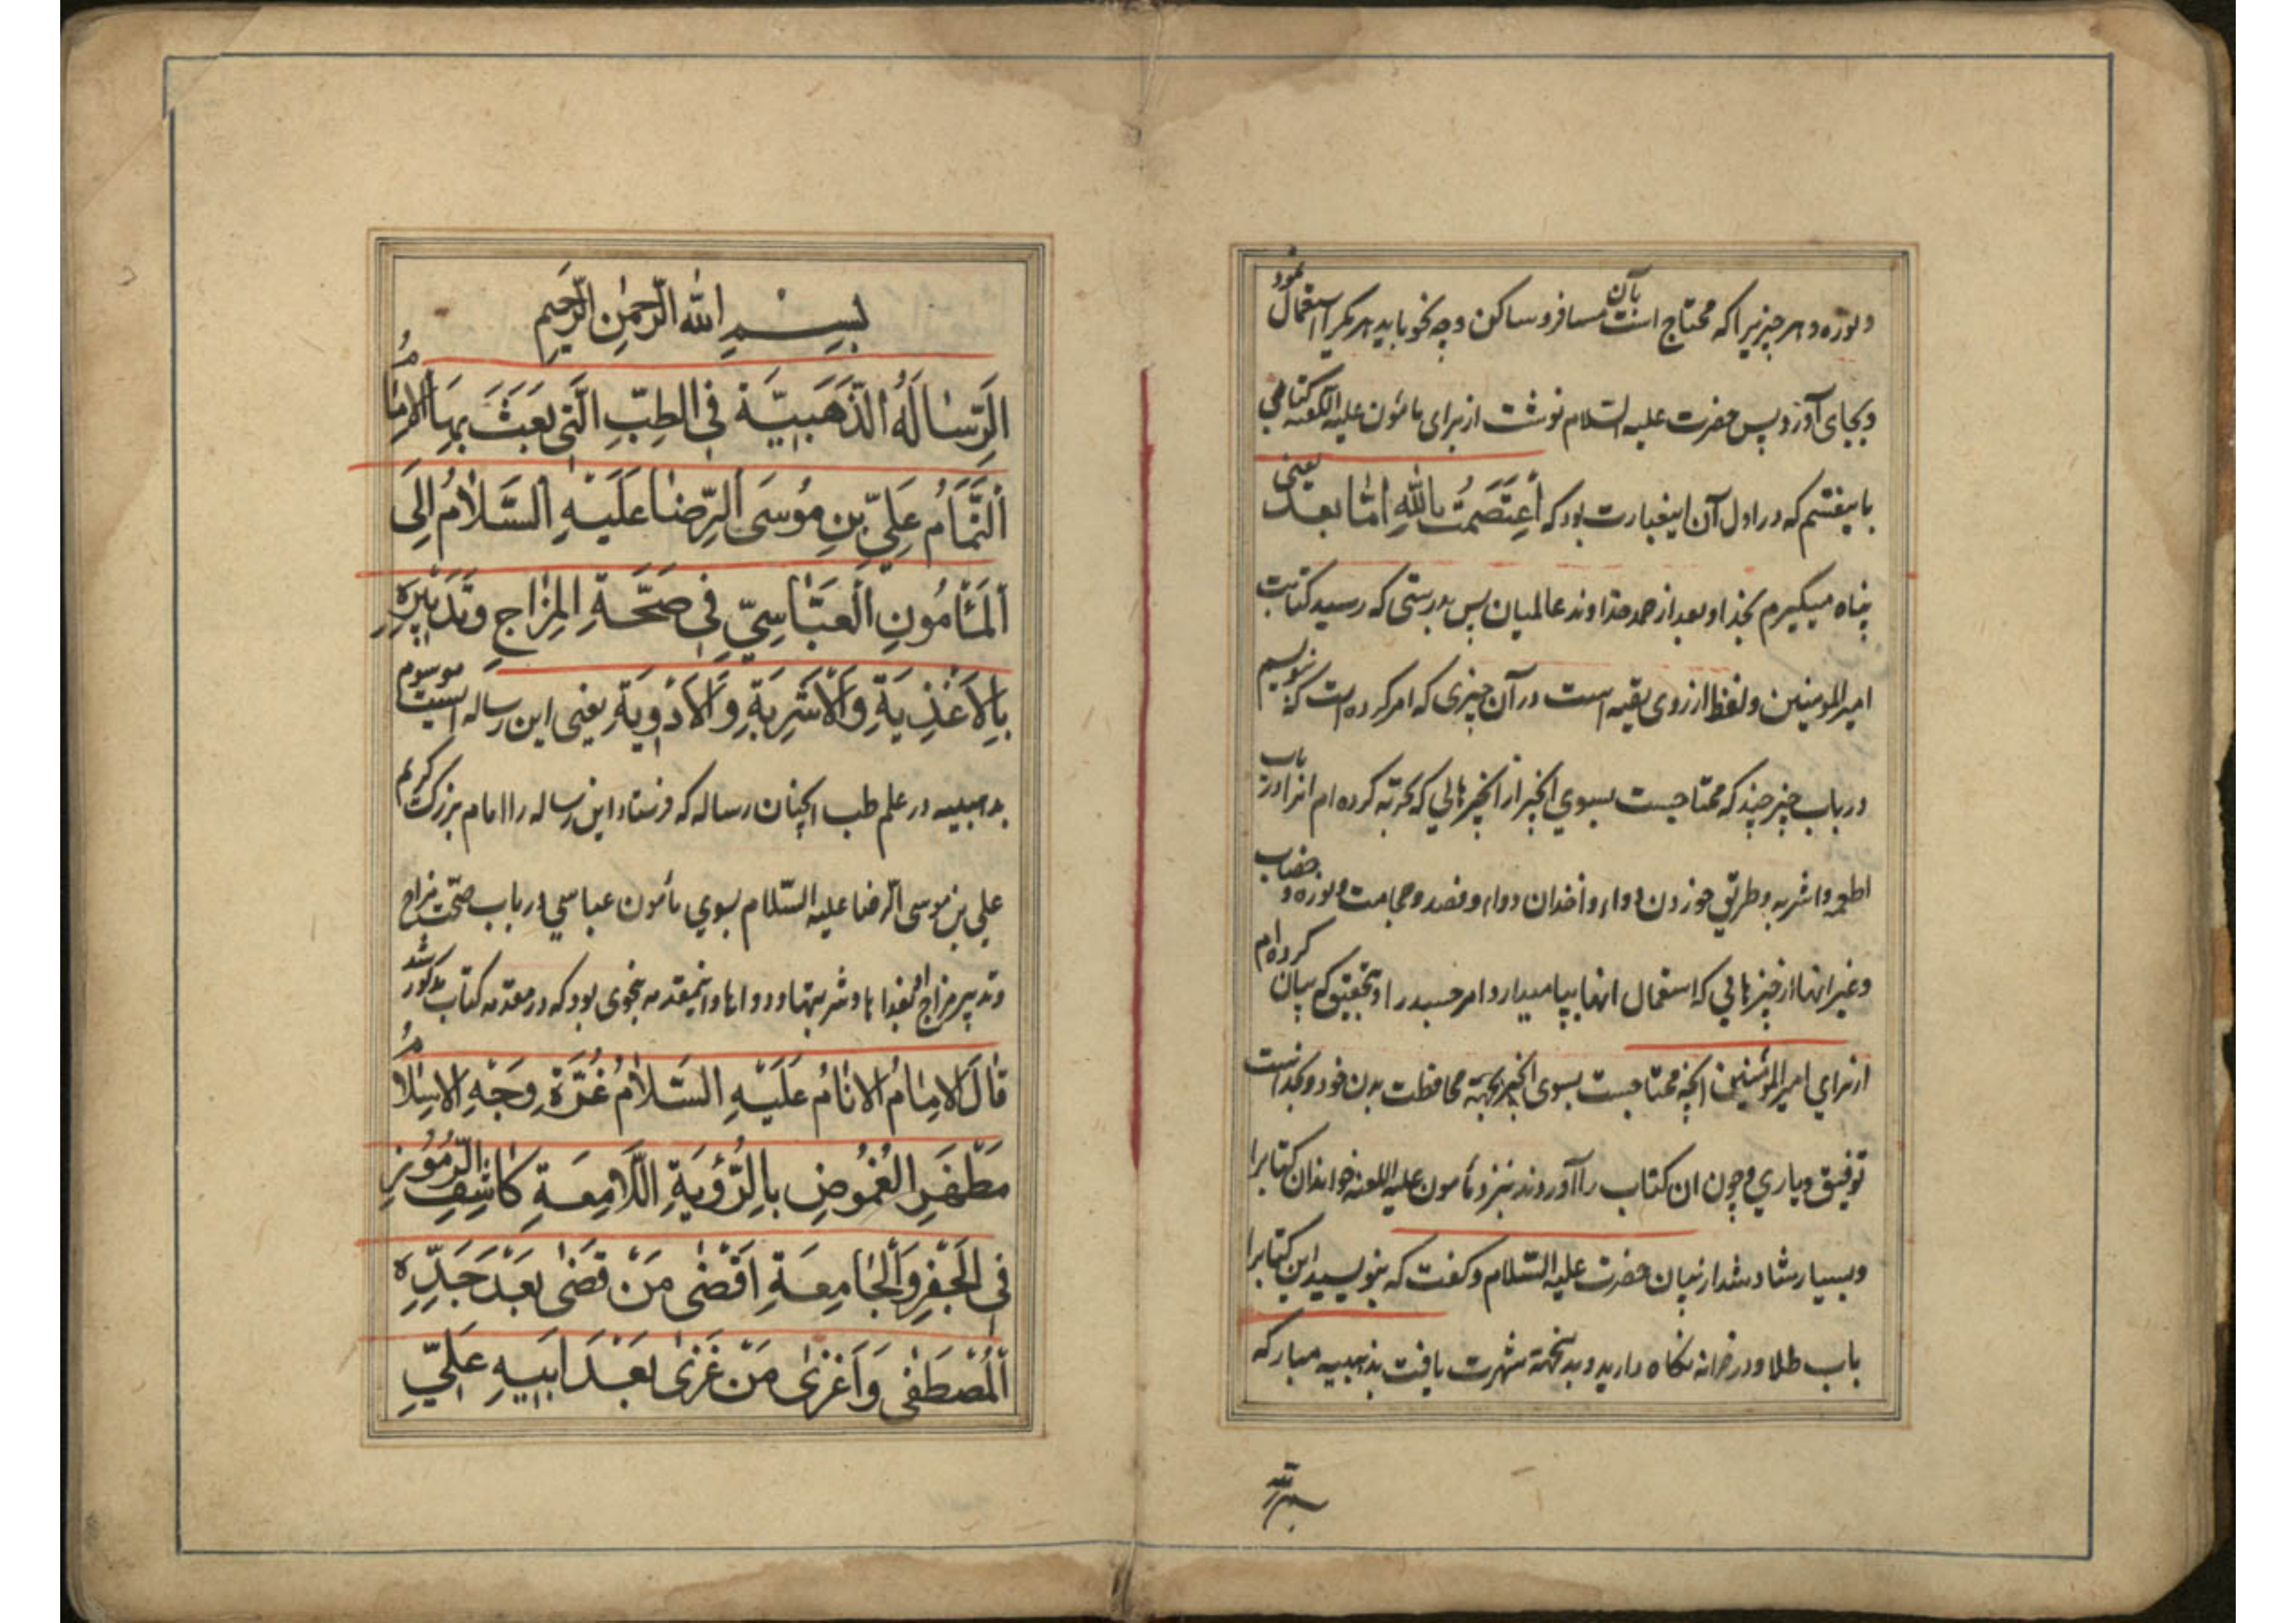 ونوره و هر چیزیرا که محتاج است بآن مسافر و ساکن و چه نحو باید هر یکرا استعمال نمود
و بجای آورد و پس حضرت علیه السلام نوشت از برای مامون علیه اللعنه کتابی
باینقسم که در اول آن اینعبارت بود که اَعْتَصَمْتُ بِاللّٰهِ اَمّا بَعد یعنی
پناه میگیرم بخدا و بعد از حمد خداوند عالمیان پس بدرستی که رسید کتابت
امیرالمومنین و لفظ از روی تقیه است در آن چیزی که امر کرده است که بنویسم
در باب چیز چند که محتاجست بسوی انچیز از انچیزهایی که تجربه کرده ام انرا در باب
اطعمه و اشربه و طریق خوردن دواء و اخذان دواء و فصد و حجامت و نوره و خضاب
و غیر انها از چیزهایی که استعمال انها بپا میدارد امر جسد را و بتحقیق که بیان کرده ام
از برای امیرالمؤمنین انچه محتاجست بسوی انچیز بجهة محافظت بدن خود و بخداست
توفیق و یاری و چون ان کتاب را آوردند بنزد مأمون علیه اللعنه خواند ان کتابرا
و بسیار شاد شد از بیان حضرت علیه السلام و گفت که بنویسید این کتابرا
باب طلا و در خزانه نگاه دارید و بدینجهة شهرت یافت بذهبیه مبارکه
بسم الله
بِسْمِ اللّٰهِ الرَّحْمٰنِ الرَّحِيمِ
اَلرِّسٰالَةُ الذَّهَبِيَّة فِي الطِبِّ الَّتى بَعَثَ بِهَا الاِمٰامُ
اَلتَّمٰامُ عَلِيِّ بنِ مُوسَى الرِّضٰا عَلَيْهِ السَّلٰامُ اِلَى
اَلْمَأمُونِ الْعَبّٰاسِيِّ فِي صِحَّةِ المِزٰاجِ وَتَدْبِيرِهِ
بِالْاَغْذِيَةِ وَالْاَشْرِبَةِ وَالْاَدْوِيَةِ یعنی این رساله ایست موسوم
بذهبیه در علم طب انچنان رساله که فرستاد این رساله را امام بزرگ کریم
علی بن موسی الرضا علیه السّلام بسوی مأمون عباسی در باب صحّت مزاج
و تدبیر مزاج بغذاها و شربتها و دواها و اینمقدمه بنحوی بود که در مقدمه کتاب مذکور شد
قٰالَ الاِمٰامُ الاَنٰامُ عَلَيْهِ السَّلٰامُ غُرَّةِ وَجْهِ الاِسْلٰامُ
مَظْهَرِ الغُمُوضِ بِالرُّؤيَةِ اللّامِعَةِ كٰاشِفِ الرُّمُوزِ
فِي الْجَفْرِ وَالْجٰامِعَةِ اَقْضٰى مَنْ قَضٰى بَعْدَ جَدِّهِ
اَلْمُصْطَفٰى وَاَغْزىٰ مَنْ غَزىٰ بَعْدَ اَبيهِ عَلِيِّ